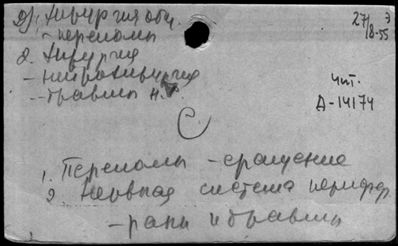 Хирургия общ.
- переломы
27/8-55
2. Хирургия
- нейрохирургия
- травмы н.
Чит.
Д-14174
С
1. Переломы - сращение
2 Нервная система перифер.
- раны и травмы